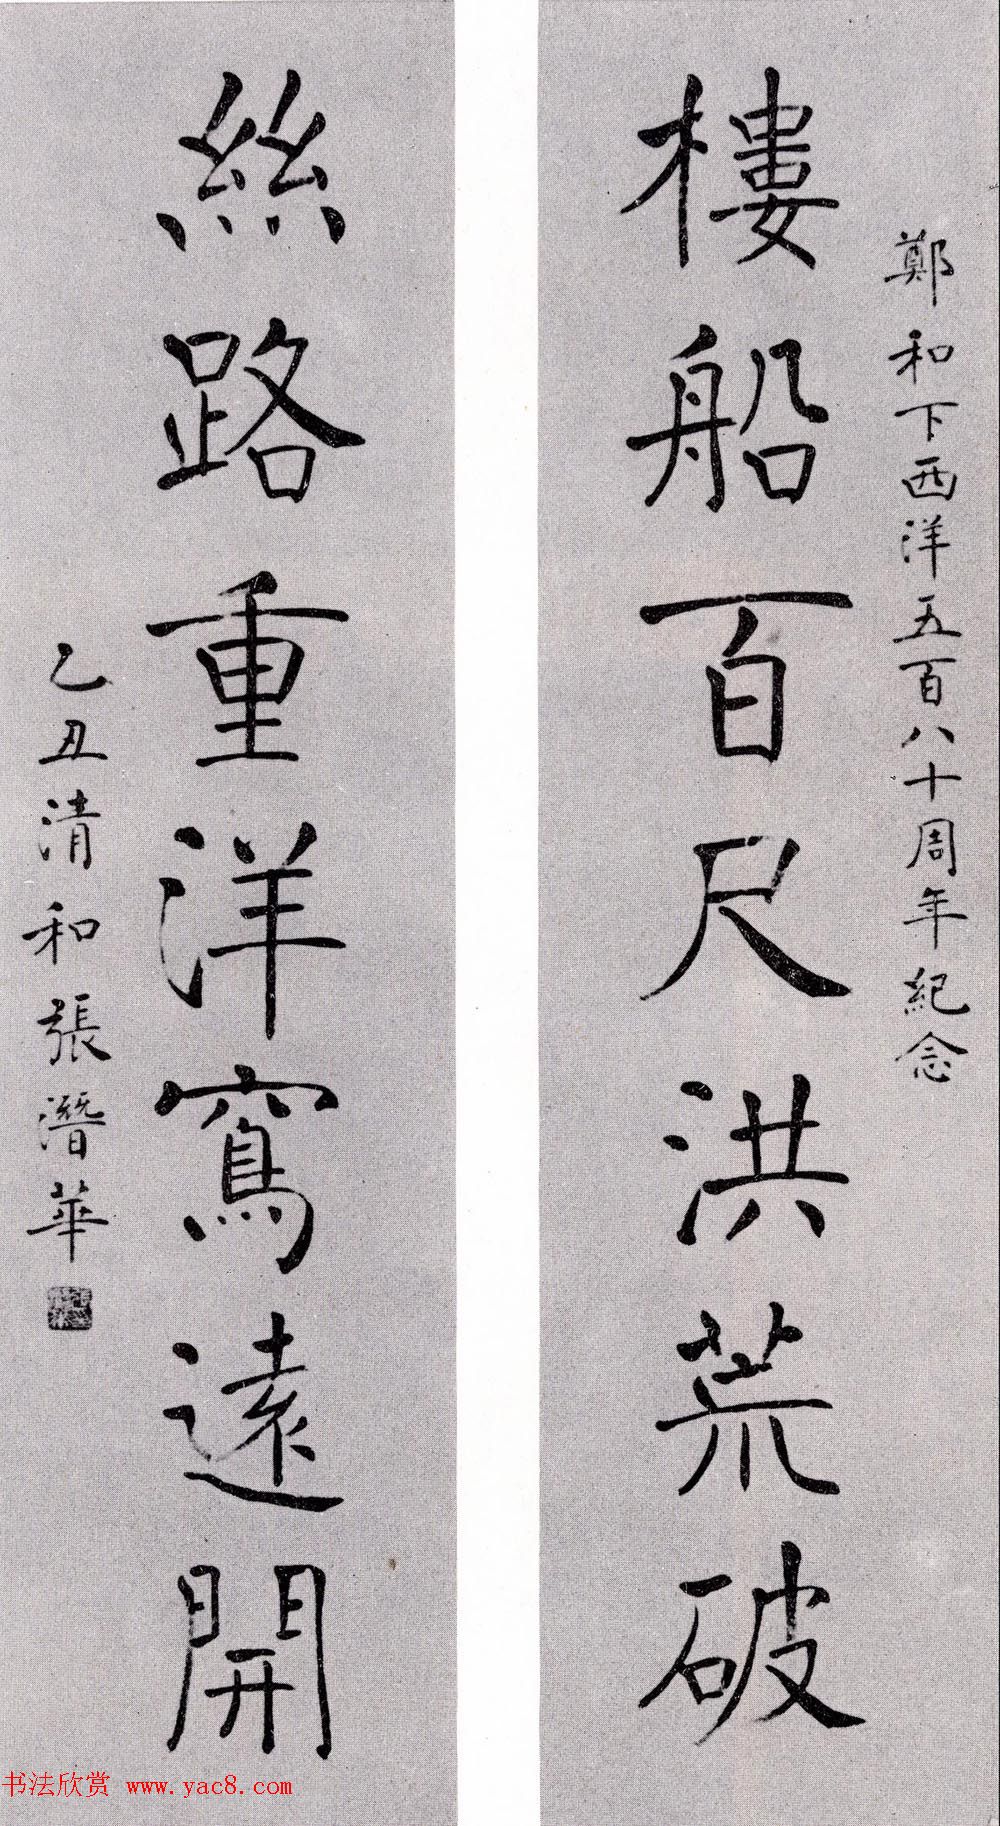 鄭和下西洋五百八十周年紀念
樓船百尺洪荒破
絲路重洋窵遠開
乙丑清和張潛華
书法欣赏 www.yac8.com